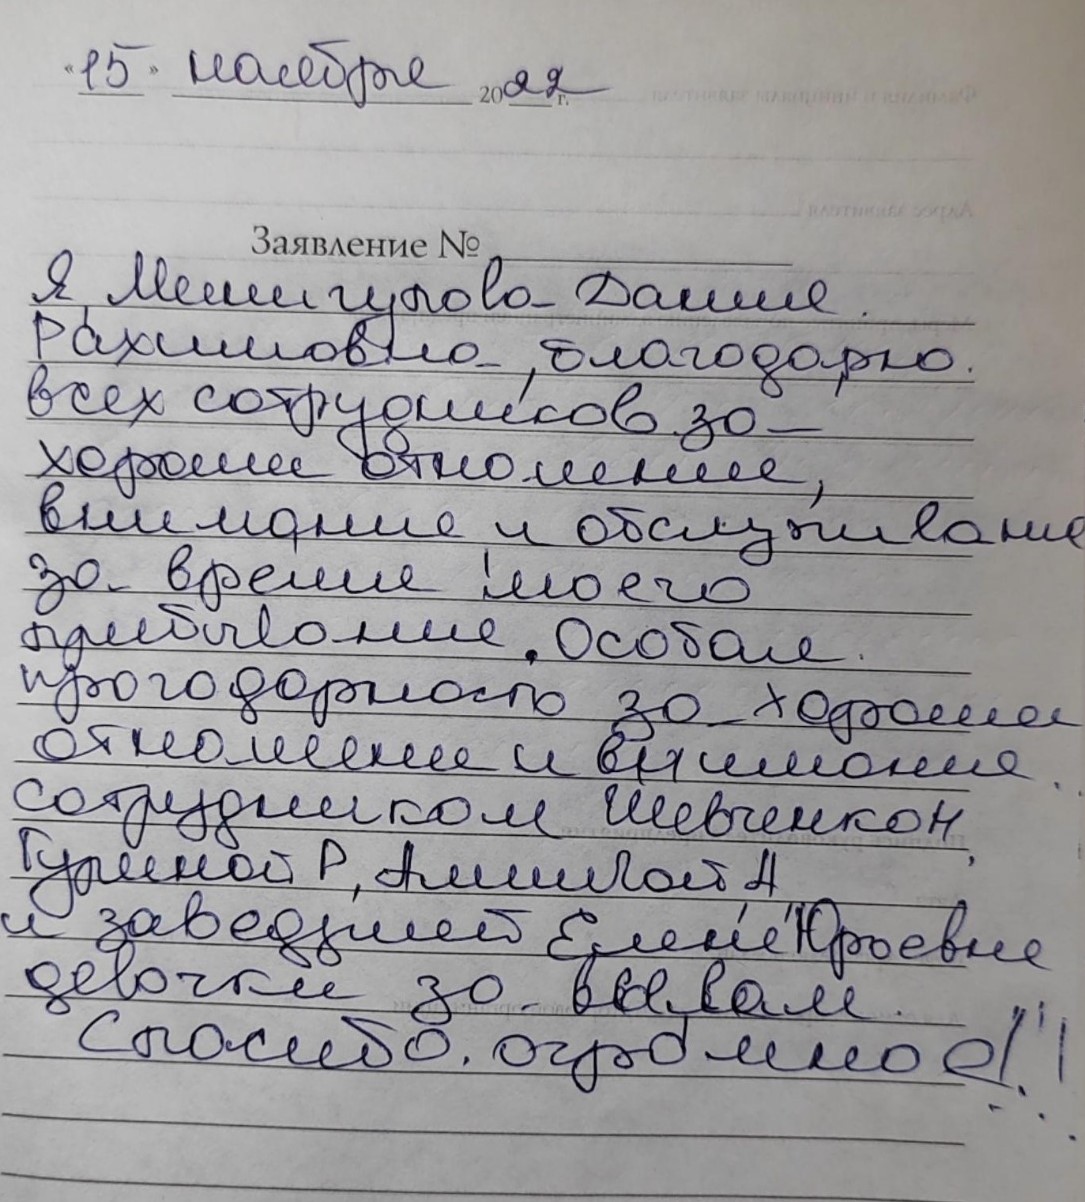 «15» ноября 2022 г.
Заявление №
Я, Минигулова Дания
Рахимовна, благодарю
всех сотрудников за
хорошее отношение,
внимание и обслуживание
за время моего
пребывания. Особая
благодарность за хорошее
отношение и внимание
сотрудникам Шевченко Н,
Гуриной Р, А
и заведущей Елене Юрьевне
девочки за все вам
Спасибо огромное!!!